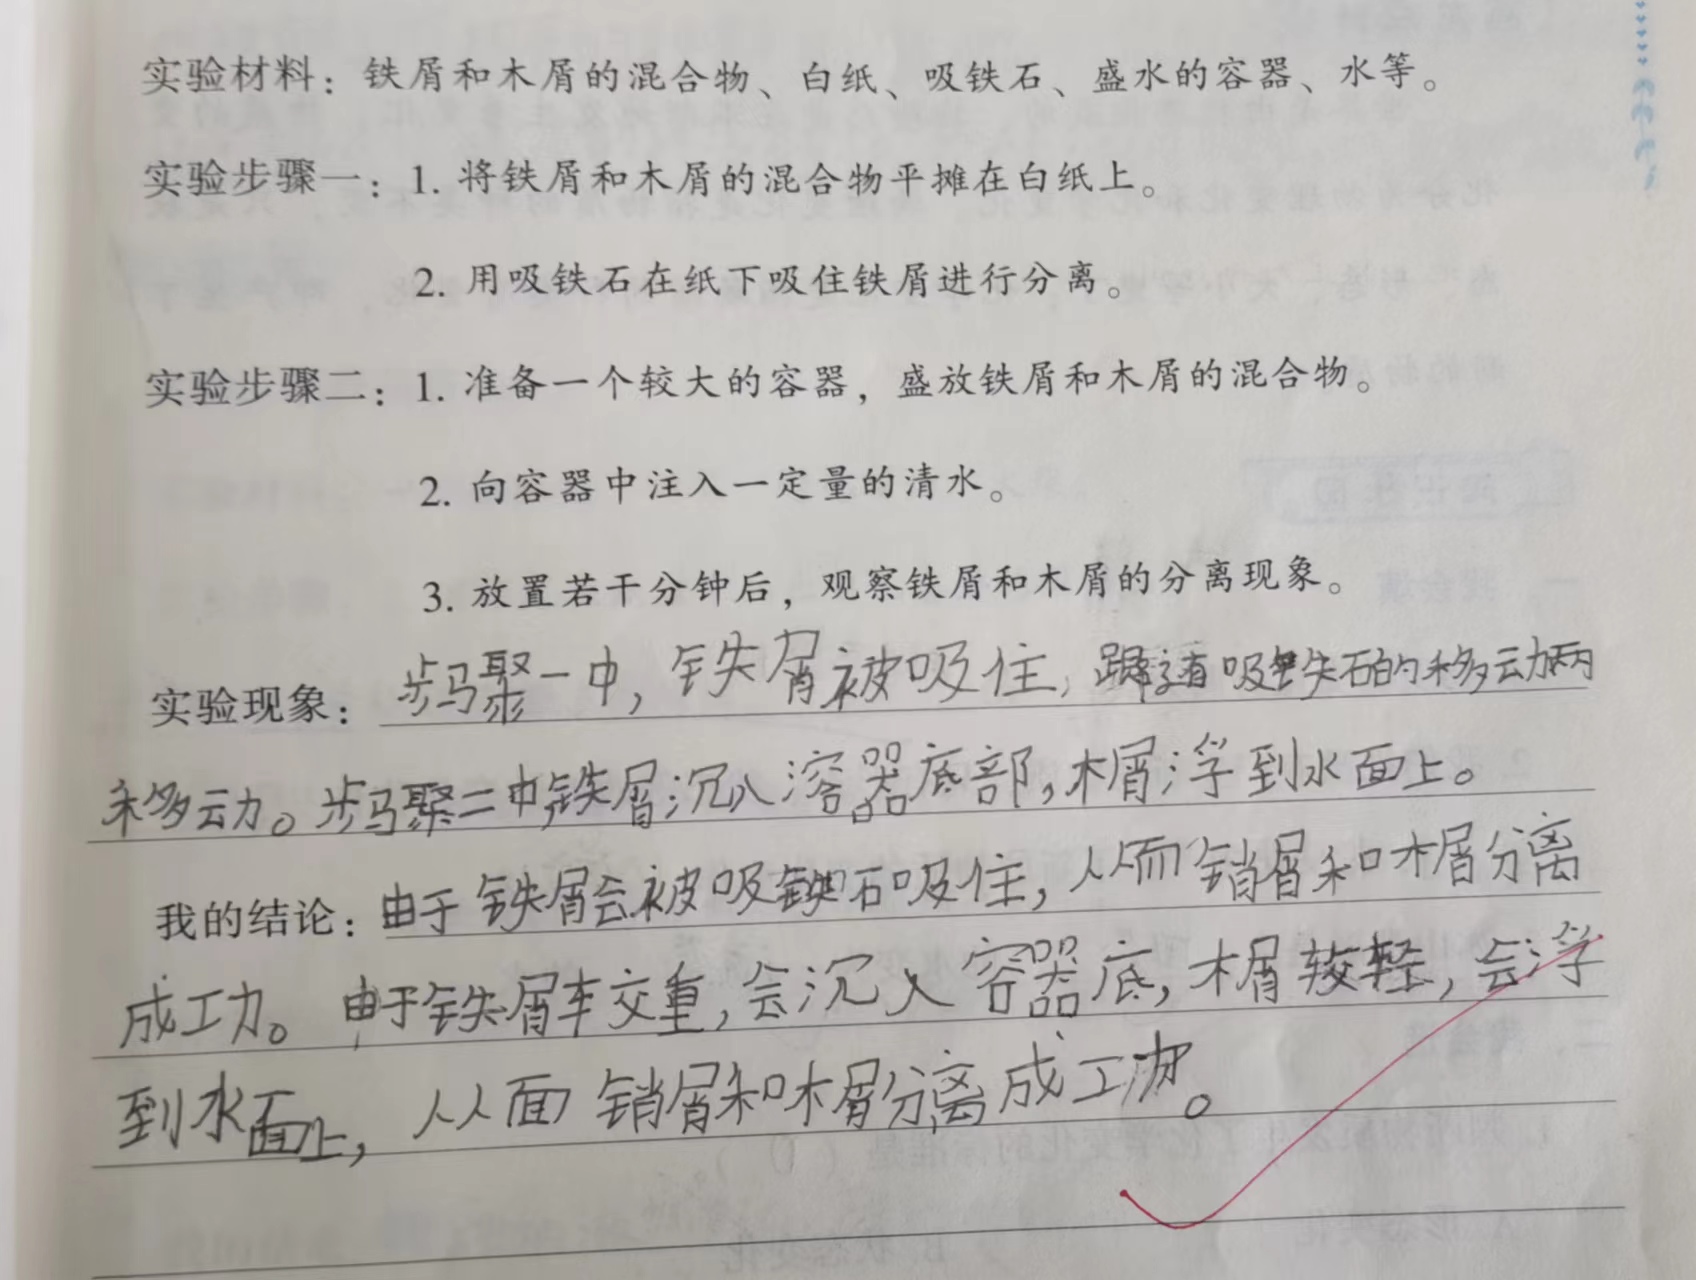 实验材料：铁屑和木屑的混合物、白纸、吸铁石、盛水的容器、水等。
实验步骤一：1. 将铁屑和木屑的混合物平摊在白纸上。
2. 用吸铁石在纸下吸住铁屑进行分离。
实验步骤二：1. 准备一个较大的容器，盛放铁屑和木屑的混合物。
2. 向容器中注入一定量的清水。
3. 放置若干分钟后，观察铁屑和木屑的分离现象。
实验现象：步骤一中，铁屑被吸住，跟着吸铁石的移动而
移动。步骤二中，铁屑沉入容器底部，木屑浮到水面上。
我的结论：由于铁屑会被吸铁石吸住，从而销屑和木屑分离
成功。由于铁屑较重，会沉入容器底，木屑较轻，会浮
到水面上，从面销屑和木屑分离成功。